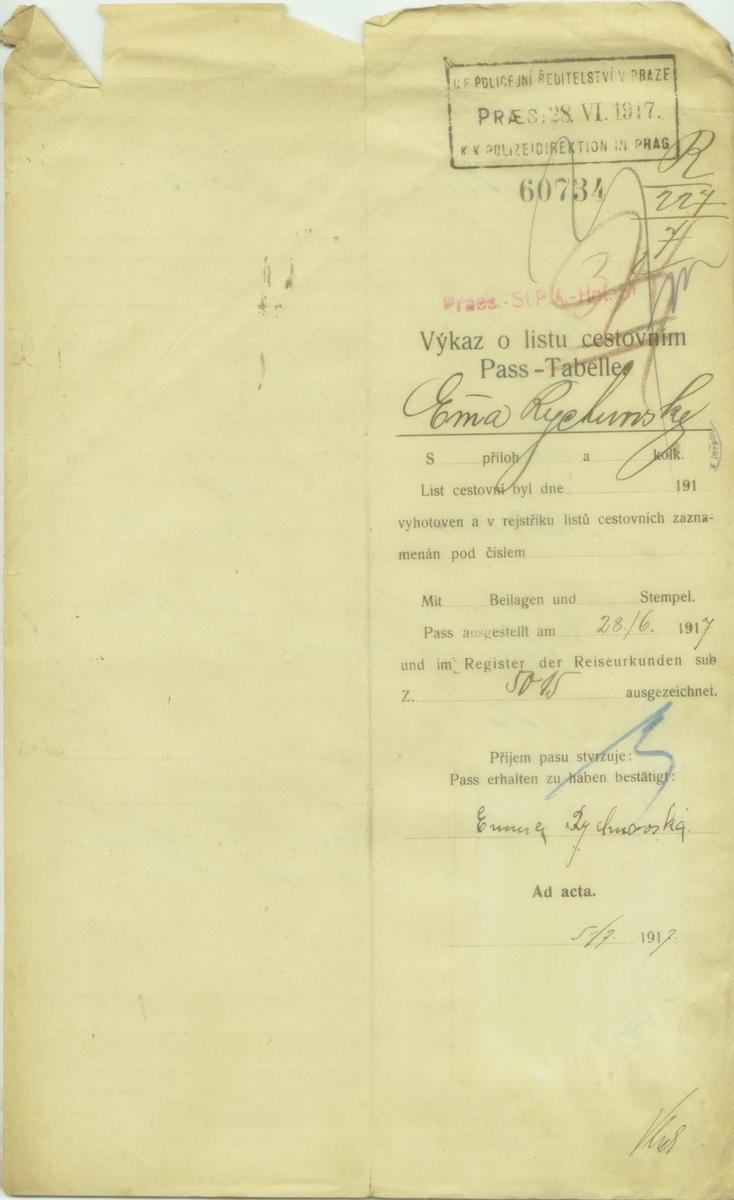 C. K. POLICEJNÍ ŘEDITELSTVÍ V PRAZE
PRÆS: 28. VI. 1917.
K. K. POLIZEIDIREKTION IN PRAG
60734
R
227
7
Praes.-St.P.A.-
Výkaz o listu cestovním
Pass-Tabelle
Ema Rychnovsky
S příloh a kolk.
List cestovní byl dne 191
vyhotoven a v rejstříku listů cestovních zazna-
menán pod číslem
Mit Beilagen und Stempel.
Pass ausgestellt am 28./6. 1917
und im Register der Reiseurkunden sub
Z. 5015 ausgezeichnet.
Příjem pasu stvrzuje:
Pass erhalten zu haben bestätigt:
Emma Rychnovská
Ad acta.
5/7. 1917.